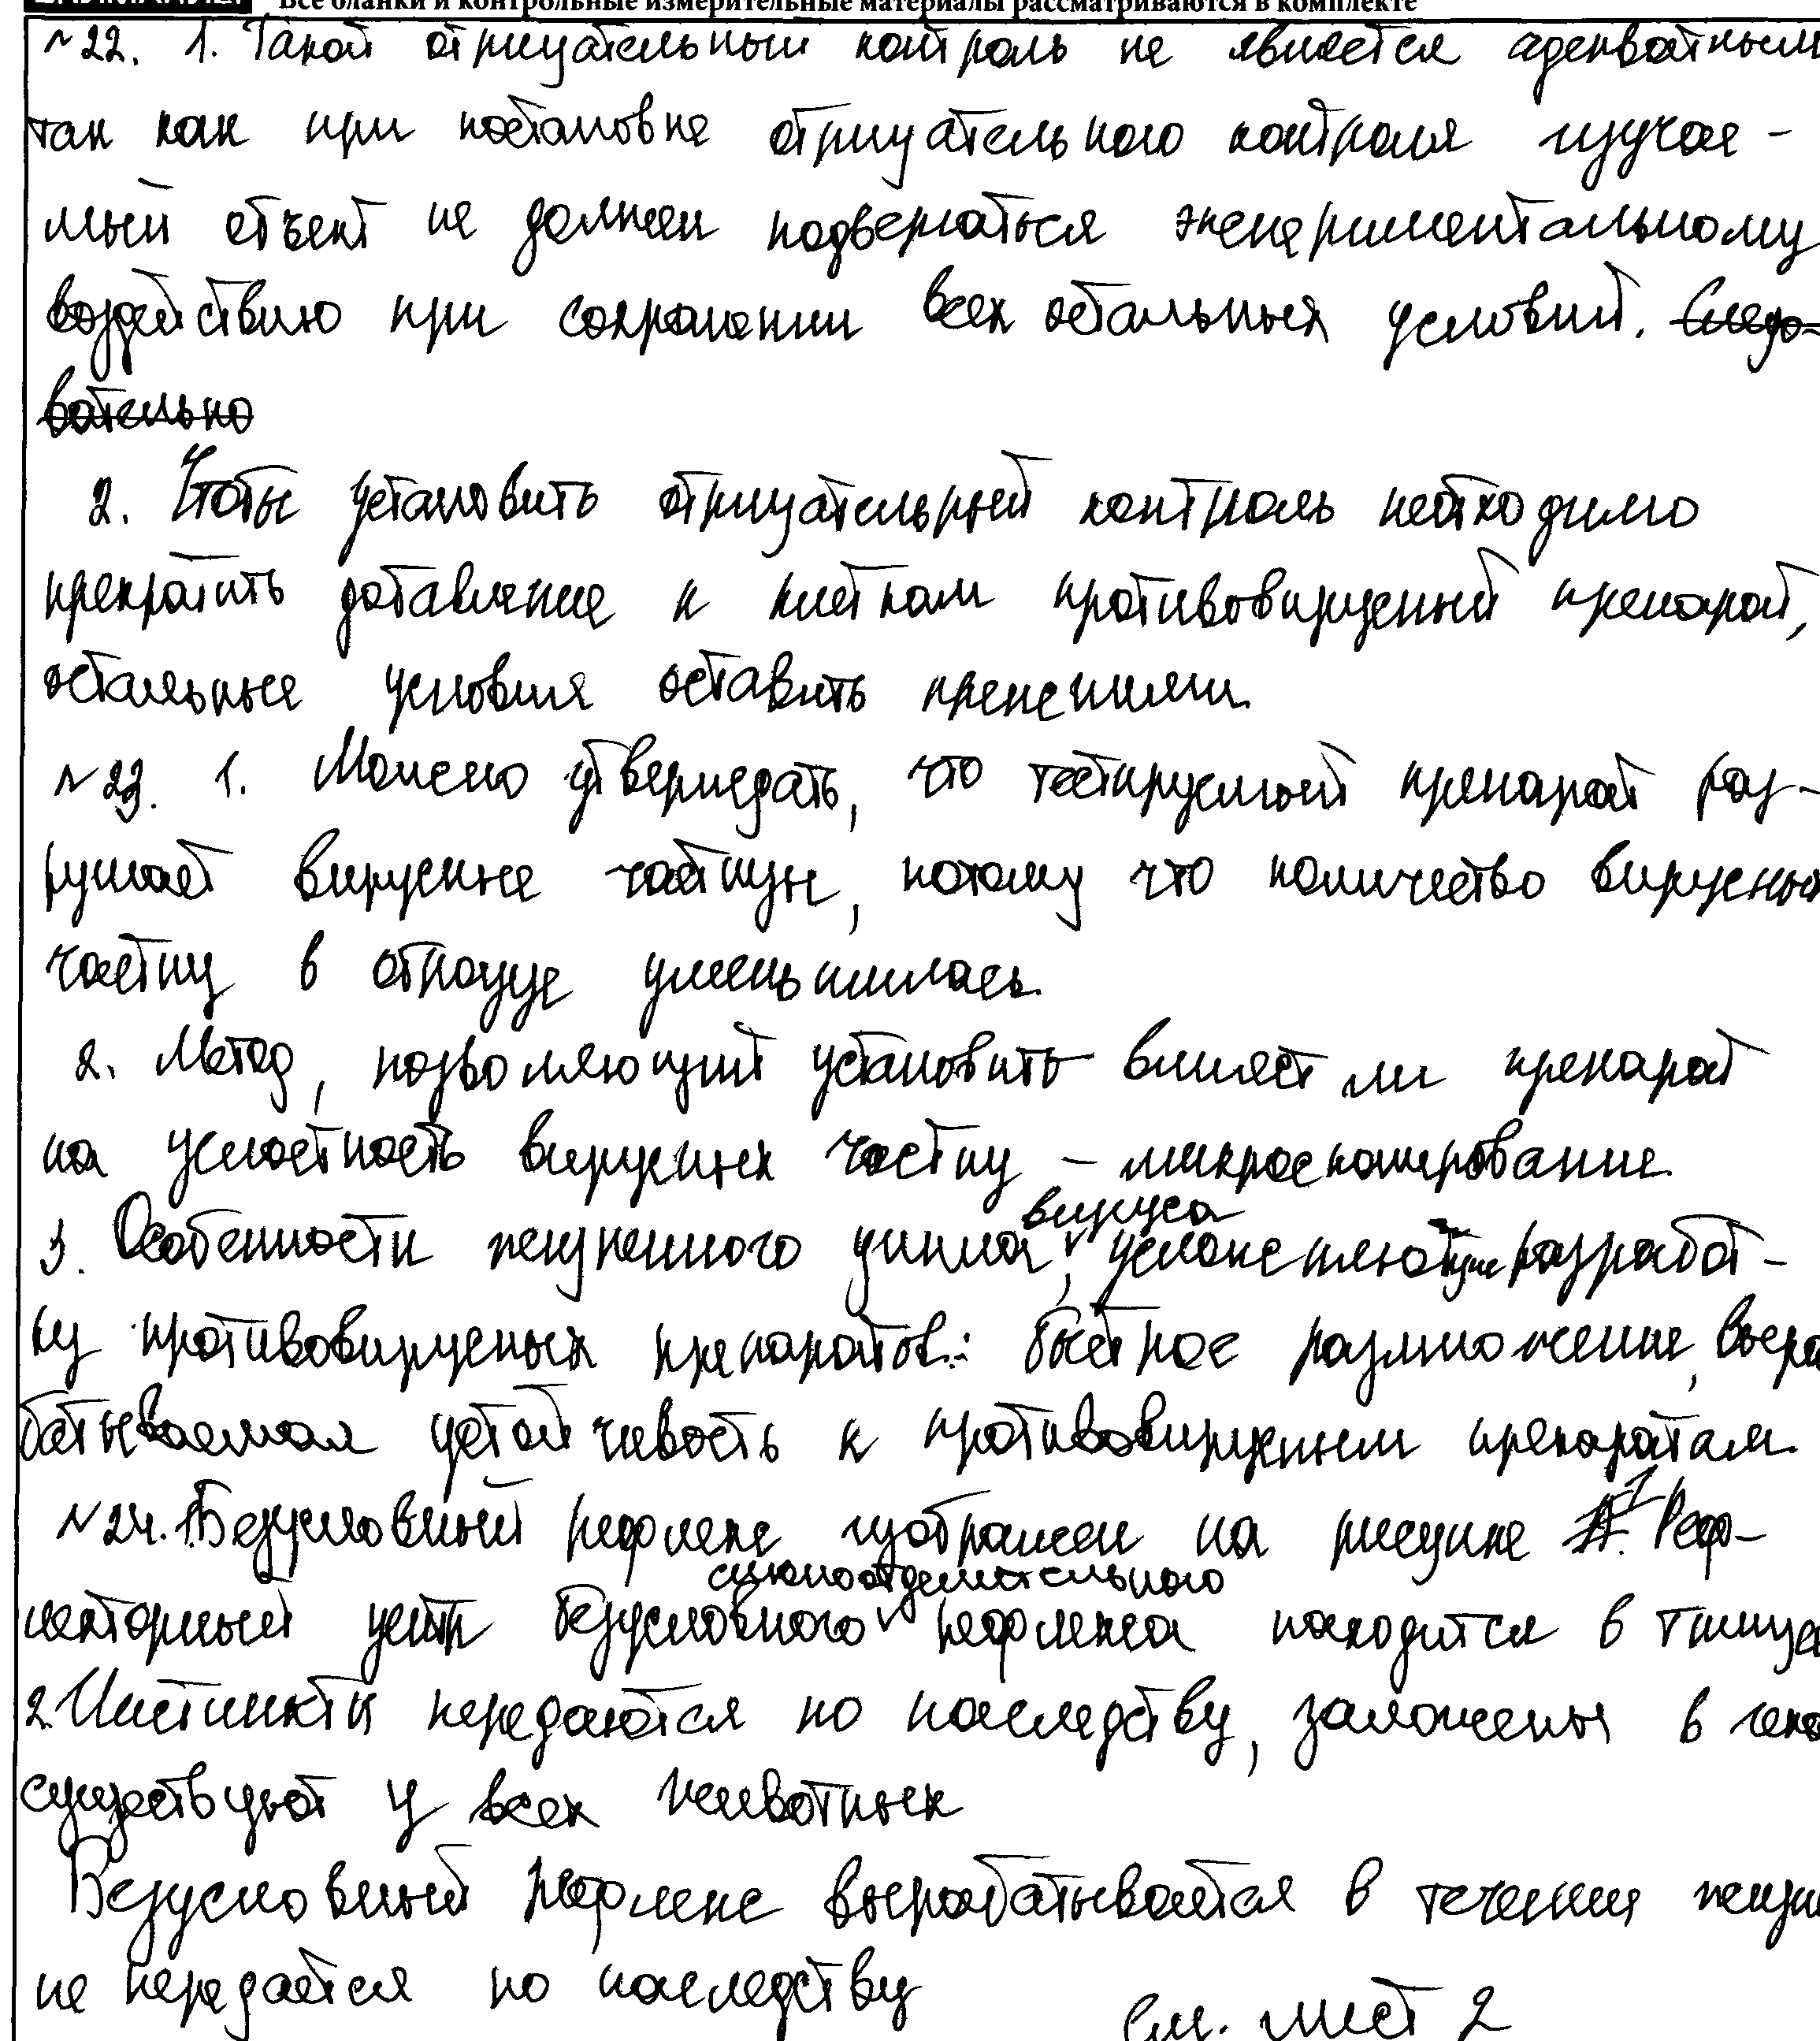 Все бланки и контрольные измерительные материалы рассматриваются в комплекте
№22. 1. Такой отрицательный контроль не является адекватным
так как при постановке отрицательного контроля изучае-
мый объект не должен подвергаться экспериментальному
воздействию при сохранении всех остальных условий. Следо-
вательно
2. Чтобы установить отрицательный контроль необходимо
прекратить добавление к клеткам противовирусный препарат,
остальные условия оставить прежними.
№23. 1. Можно утверждать, что тестируемый препарат раз-
рушает вирусные частицы, потому что количество вирусных
частиц в образце уменьшилась.
2. Метод, позволяющий установить влияет ли препарат
на целостность вирусных частиц – микроскопирование.
3. Особенности жизненного цикла вируса, усложняющие разработ-
ку противовирусных препаратов: быстрое размножение, выра
батываемая устойчивость к противовирусным препаратам.
№24. 1. Безусловный рефлекс изображен на рисунке 1. Реф-
лекторный центр безусловного слюноотделительного рефлекса находится в
2. Инстинкты передаются по наследству, заложены в
существуют у всех животных
Безусловный рефлекс вырабатывается в течении жизни
не передаётся по наследству
См. лист 2